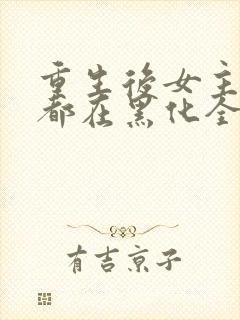 重生後女主
都在黑化全
有吉京子